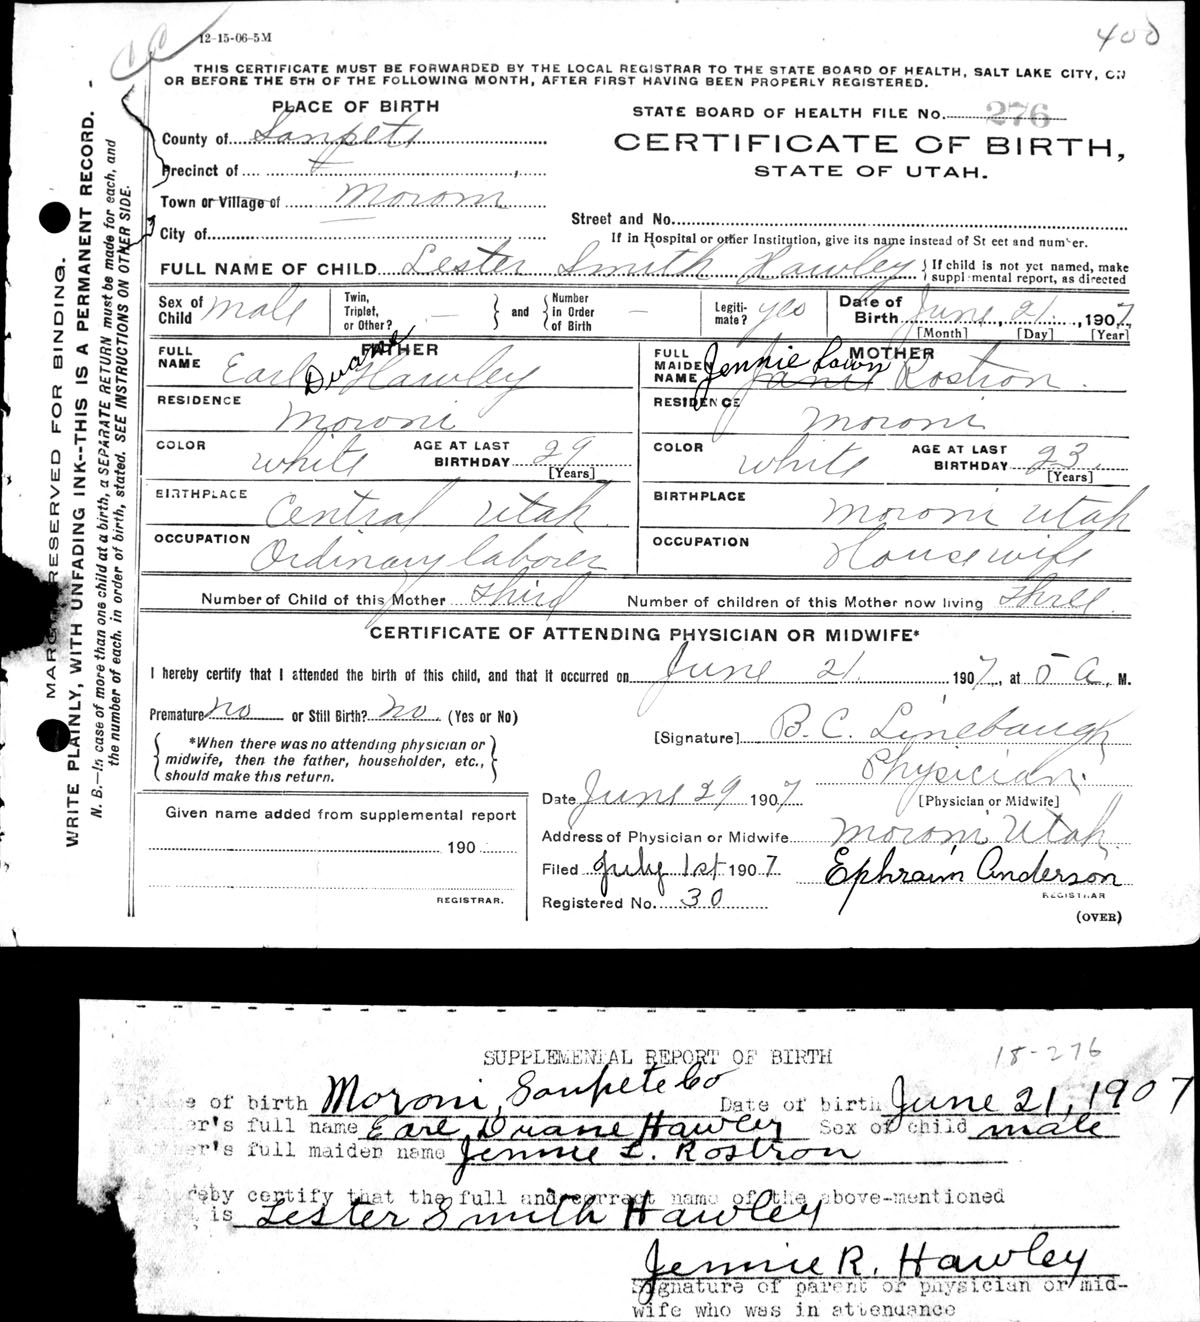 12-15-06-5M
400
THIS CERTIFICATE MUST BE FORWARDED BY THE LOCAL REGISTRAR TO THE STATE BOARD OF HEALTH, SALT LAKE CITY, ON
OR BEFORE THE 5TH OF THE FOLLOWING MONTH, AFTER FIRST HAVING BEEN PROPERLY REGISTERED.
PLACE OF BIRTH
STATE BOARD OF HEALTH FILE No. 276
County of Sanpete
CERTIFICATE OF BIRTH,
Precinct of
STATE OF UTAH.
Town or Village of Moroni
Street and No.
City of
If in Hospital or other Institution, give its name instead of Street and number.
FULL NAME OF CHILD Lester Smith Hawley { If child is not yet named, make
supplemental report, as directed
Sex of Child male Twin, Triplet, or Other? — } and { Number in Order of Birth — Legiti-mate? yes Date of Birth June 21, 1907
[Month] [Day] [Year]
FATHER
MOTHER
FULL NAME Earl Duane Hawley
FULL MAIDEN NAME Jennie Lown Janet Rostron
RESIDENCE Moroni
RESIDENCE Moroni
COLOR white AGE AT LAST BIRTHDAY 29 [Years]
COLOR white AGE AT LAST BIRTHDAY 23 [Years]
BIRTHPLACE Central Utah
BIRTHPLACE Moroni Utah
OCCUPATION Ordinary laborer
OCCUPATION Housewife
Number of Child of this Mother third Number of children of this Mother now living three
CERTIFICATE OF ATTENDING PHYSICIAN OR MIDWIFE*
I hereby certify that I attended the birth of this child, and that it occurred on June 21 1907, at 5 A. M.
Premature no or Still Birth? no. (Yes or No)
[Signature] B. C. Linebaugh
*When there was no attending physician or
midwife, then the father, householder, etc.,
should make this return.
Physician
[Physician or Midwife]
Date June 29 1907
Given name added from supplemental report
Address of Physician or Midwife Moroni Utah
190
Filed July 1st 1907 Ephraim Anderson
REGISTRAR
REGISTRAR.
Registered No. 30
(OVER)
MARGIN RESERVED FOR BINDING.
WRITE PLAINLY, WITH UNFADING INK--THIS IS A PERMANENT RECORD.
N. B.—In case of more than one child at a birth, a SEPARATE RETURN must be made for each, and
the number of each, in order of birth, stated. SEE INSTRUCTIONS ON OTHER SIDE.
SUPPLEMENTAL REPORT OF BIRTH
18-276
e of birth Moroni, Sanpete Co Date of birth June 21, 1907
er's full name Earl Duane Hawley Sex of child male
er's full maiden name Jennie L. Rostron
reby certify that the full and correct name of the above-mentioned
is Lester Smith Hawley
Jennie R. Hawley
Signature of parent or physician or mid-
wife who was in attendance